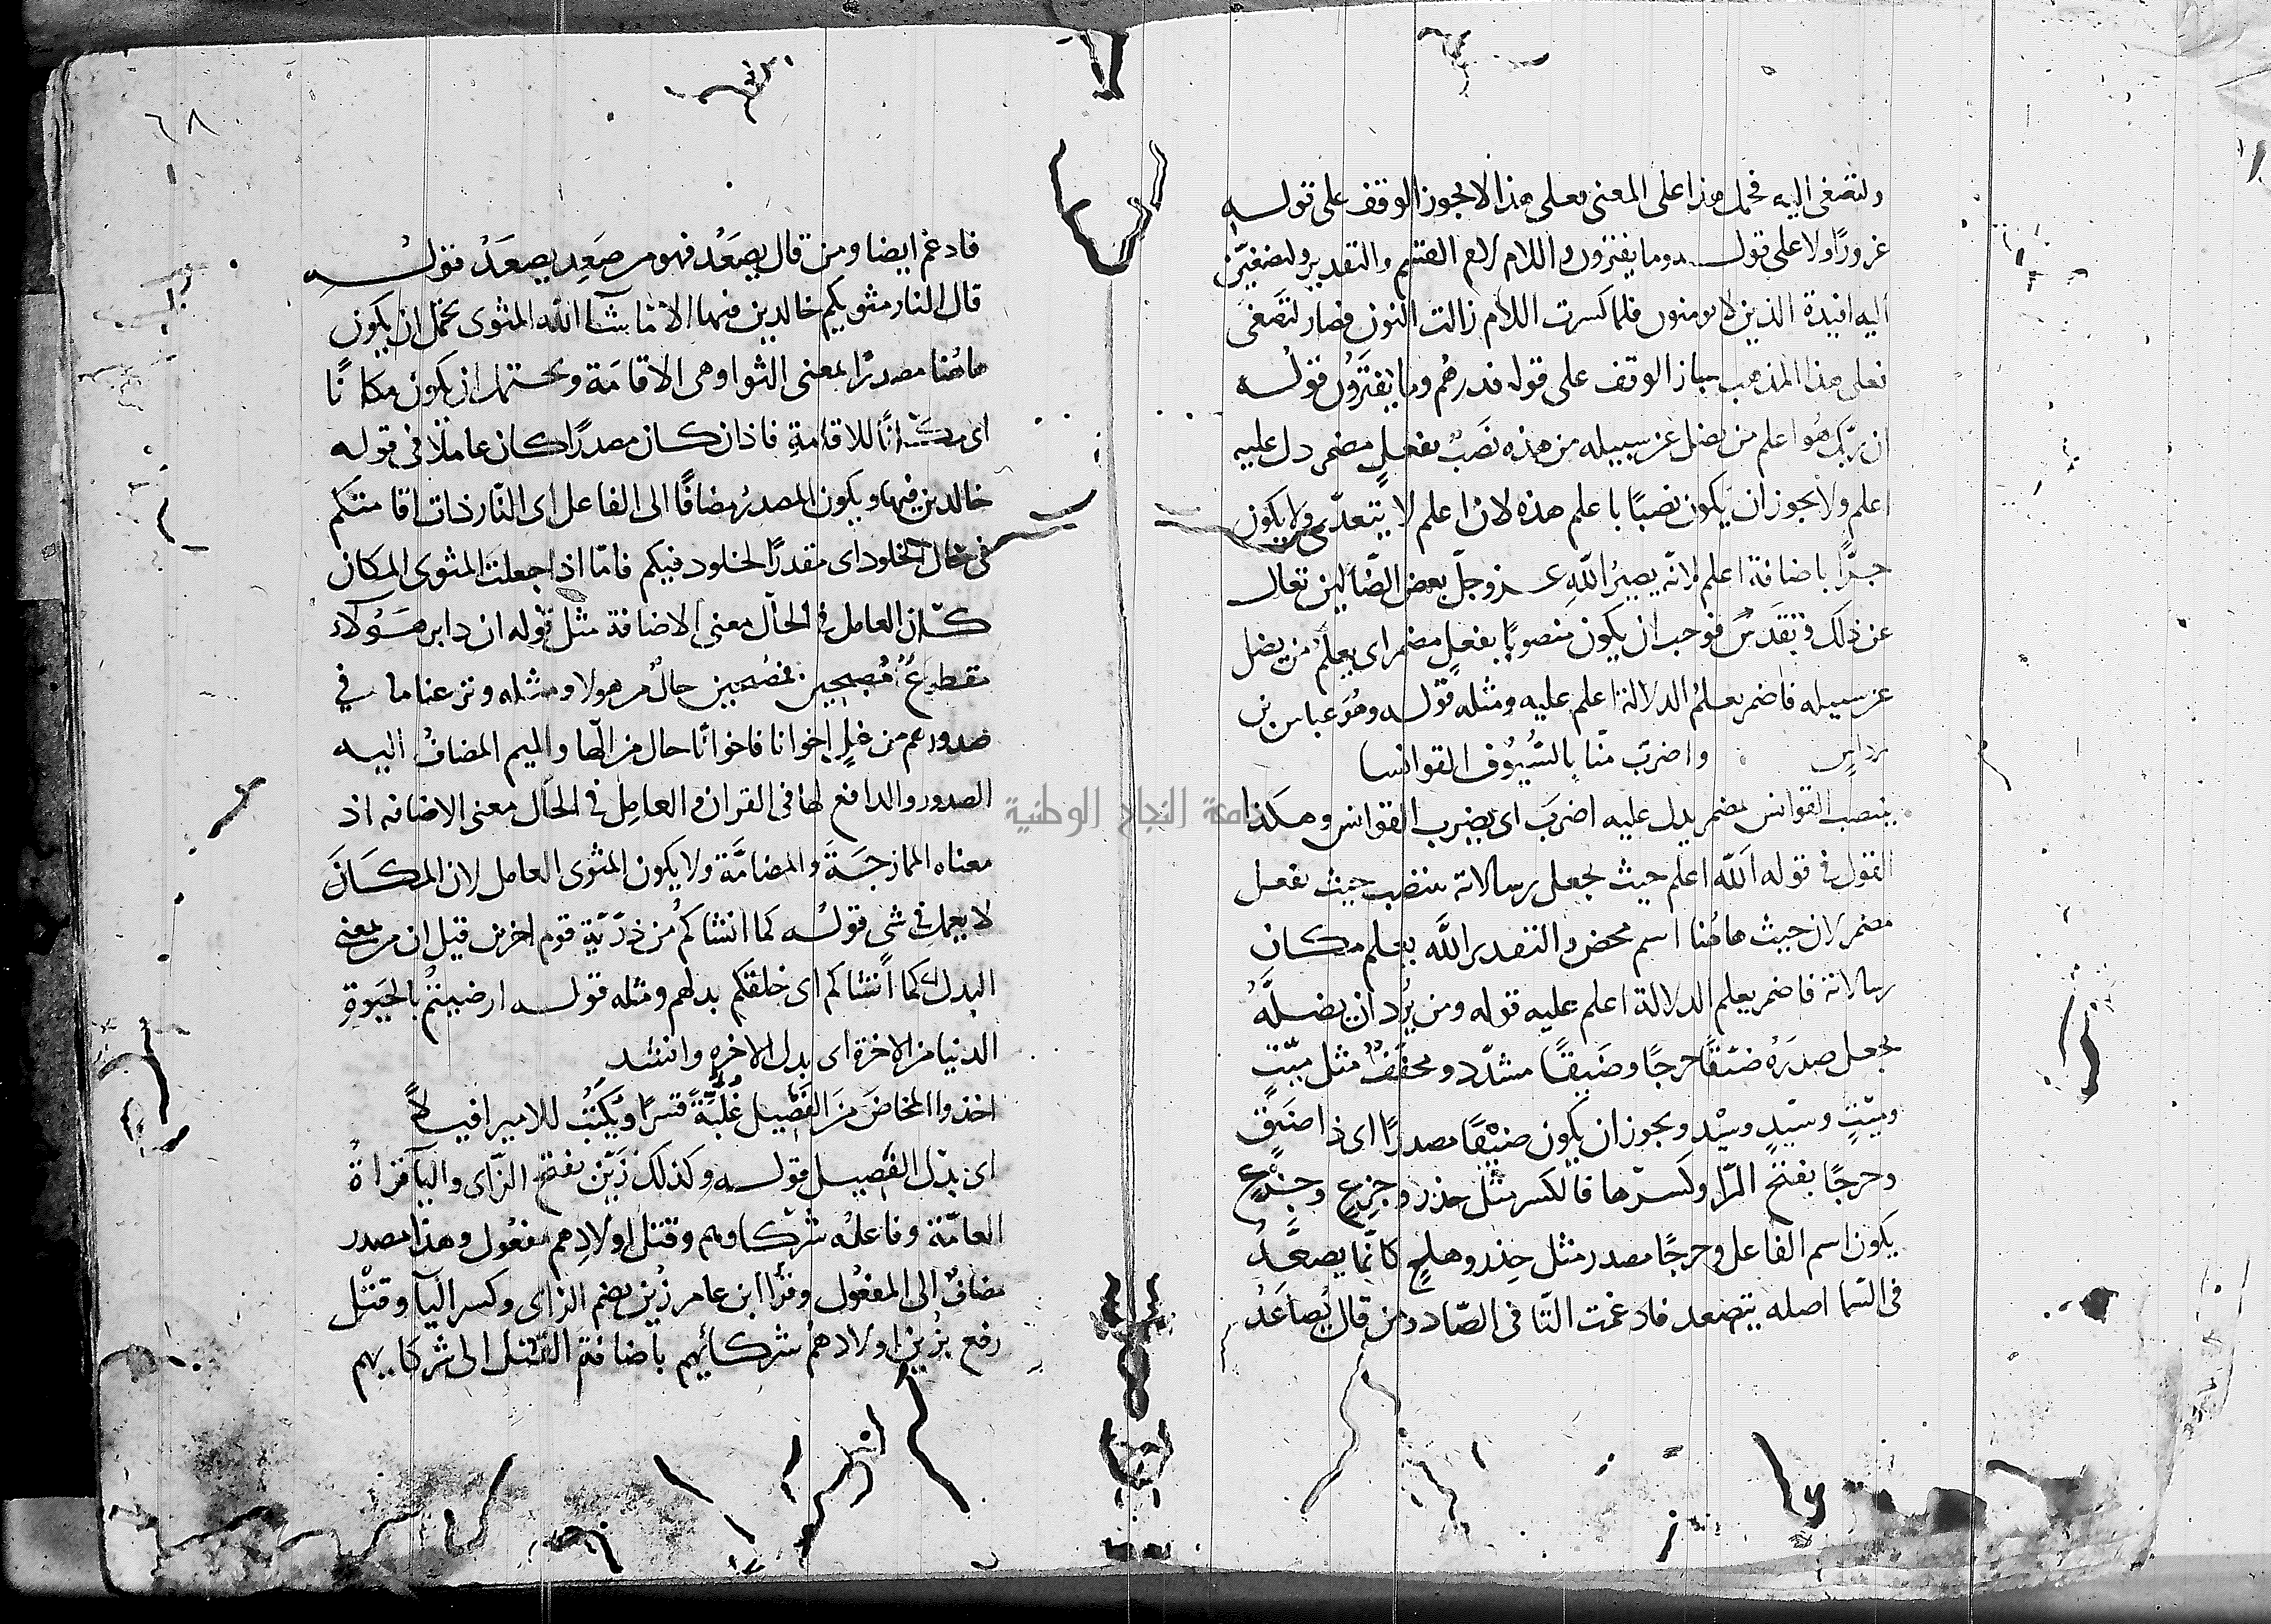 ولتصغى اليه فحمل هذا على المعنى فعلى هذا لا يجوز الوقف على قوله
غرورًا ولا على قوله وما يفترون واللام لام القسم والتقدير ولتصغيّن
اليه افيدة الذين لا يومنون فلما كسرت اللام زالت النون فصار لتصغى
فعلى هذا المذهب جاز الوقف على قوله فدرهم وما يفترون قوله
ان ربّك هُو اعلم من يضل عن سبيله من هذه نَصَبٌ بفعلٍ مضمر دل عليه
اعلم ولا يجوز ان يكون نصبًا باعلم هذه لان اعلم لا يتعدّى ولا يكون
جرًّا باضافة اعلم لانّه يصيرُ اللّه عز وجلّ بعض الضّالين تعالى
عن ذلك وتقدس فوجب ان يكون منصوبًا بفعلٍ مضمر اى يعلمُ من يضل
عن سبيله فاضمر يعلمُ لدلالة اعلم عليه ومثله قوله وهُو عباس بن
مرداسٍ واضربَ منّا بالسُّيُوف القوانسا
بنصب القوانس بمضمر يدل عليه اضرَب اى يضرب القوانس وهكذا
القول فى قوله اللّه اعلم حيث يجعل رسالاته ينصب حيث بفعل
مضمر لان حيث هاهُنا اسم محض والتقدير اللّه يعلم مكان
رسالاته فاضمر يعلم لدلالة اعلم عليه قوله ومن يُرد ان يضلَّهُ
يجعل صدرَهُ ضيّقًا حرجًا وضَيقًا مشدّد ومخفّفٌ مثل ميّتٍ
وميْتٍ وسيّدٍ وسيْدٍ ويجوز ان يكون ضيْقًا مصدرًا اى ذا ضيقٍ
وحرجًا بفتح الرّا وكسرها فالكسر مثل حذر وجزِعٍ
يكون اسم الفاعل وحرجًا مصدر مثل حذر وهلعٍ كانّما يصعَّدُ
فى السّما اصله يتصعد فادغمت التّا فى الصّاد ومن قال يُصاعَدُ
٦٨
فادغم ايضا ومن قال يصعَدُ فهو من صَعِد يصعَدُ قوله
قال النار مثويكم خالدين فيها الا ما شآ الله المثوى يحتمل ان يكون
هاهُنا مصدرًا بمعنى الثوا وهى الاقامَة ويحتمل ان يكون مكانًا
اى مكانًا للاقامةِ فاذا كان مصدرًا كان عاملًا فى قوله
خالدين فيها ويكون المصدرُ مضافًا الى الفاعل اى النّار ذات اقامتكم
فى حال الخلود اى مقدرًا الخلود فيكم فامّا اذا جعلتَ المثوى المكان
كان العامل فى الحال معنى الاضافة مثل قوله ان دابر هَؤلاء
مقطوعٌ مُصبحين فمصبحين حالٌ من هولا ومثله ونزعنا ما في
صدورهم من غلٍ اخوانا فاخوانًا حال من الها والميم المضافُ اليه
الصدور والدافع لها فى القران والعامِل فى الحال معنى الاضافه اذ
معناه الممازجَة والمضامَّة ولا يكون المثوى العامل لان المكَانَ
لا يعمل فى شى قولُه كما انشاكم من ذرّيّةِ قوم اخرين قيل ان من بمعنى
البدل كما أنشاكم اى خلقكم بدلهم ومثله قوله ارضيتمُ بالحيَوةِ
الدنيا من الاخرة اى بدل الاخره وانشد
اخذوا المخاضَ مِنَ الفَصِيلِ غُلُبَّةً قسرًا ويُكتَبُ للامير افيلاً
اى بدل الفصِيل قوله وكذلك زيّن بفتح الزّاى واليآ قراةُ
العامّة وفاعلُه شركاوهم وقتل اولادهم مفعُول وهذا مصدر
مضافٌ الى المفعُول وقرا ابن عامر زُين بضم الزاى وكسر اليآ وقتل
رفع بزُين اولادهُم شركائِهم باضافة القتل الى شركايهم
جامعة النجاح الوطنية